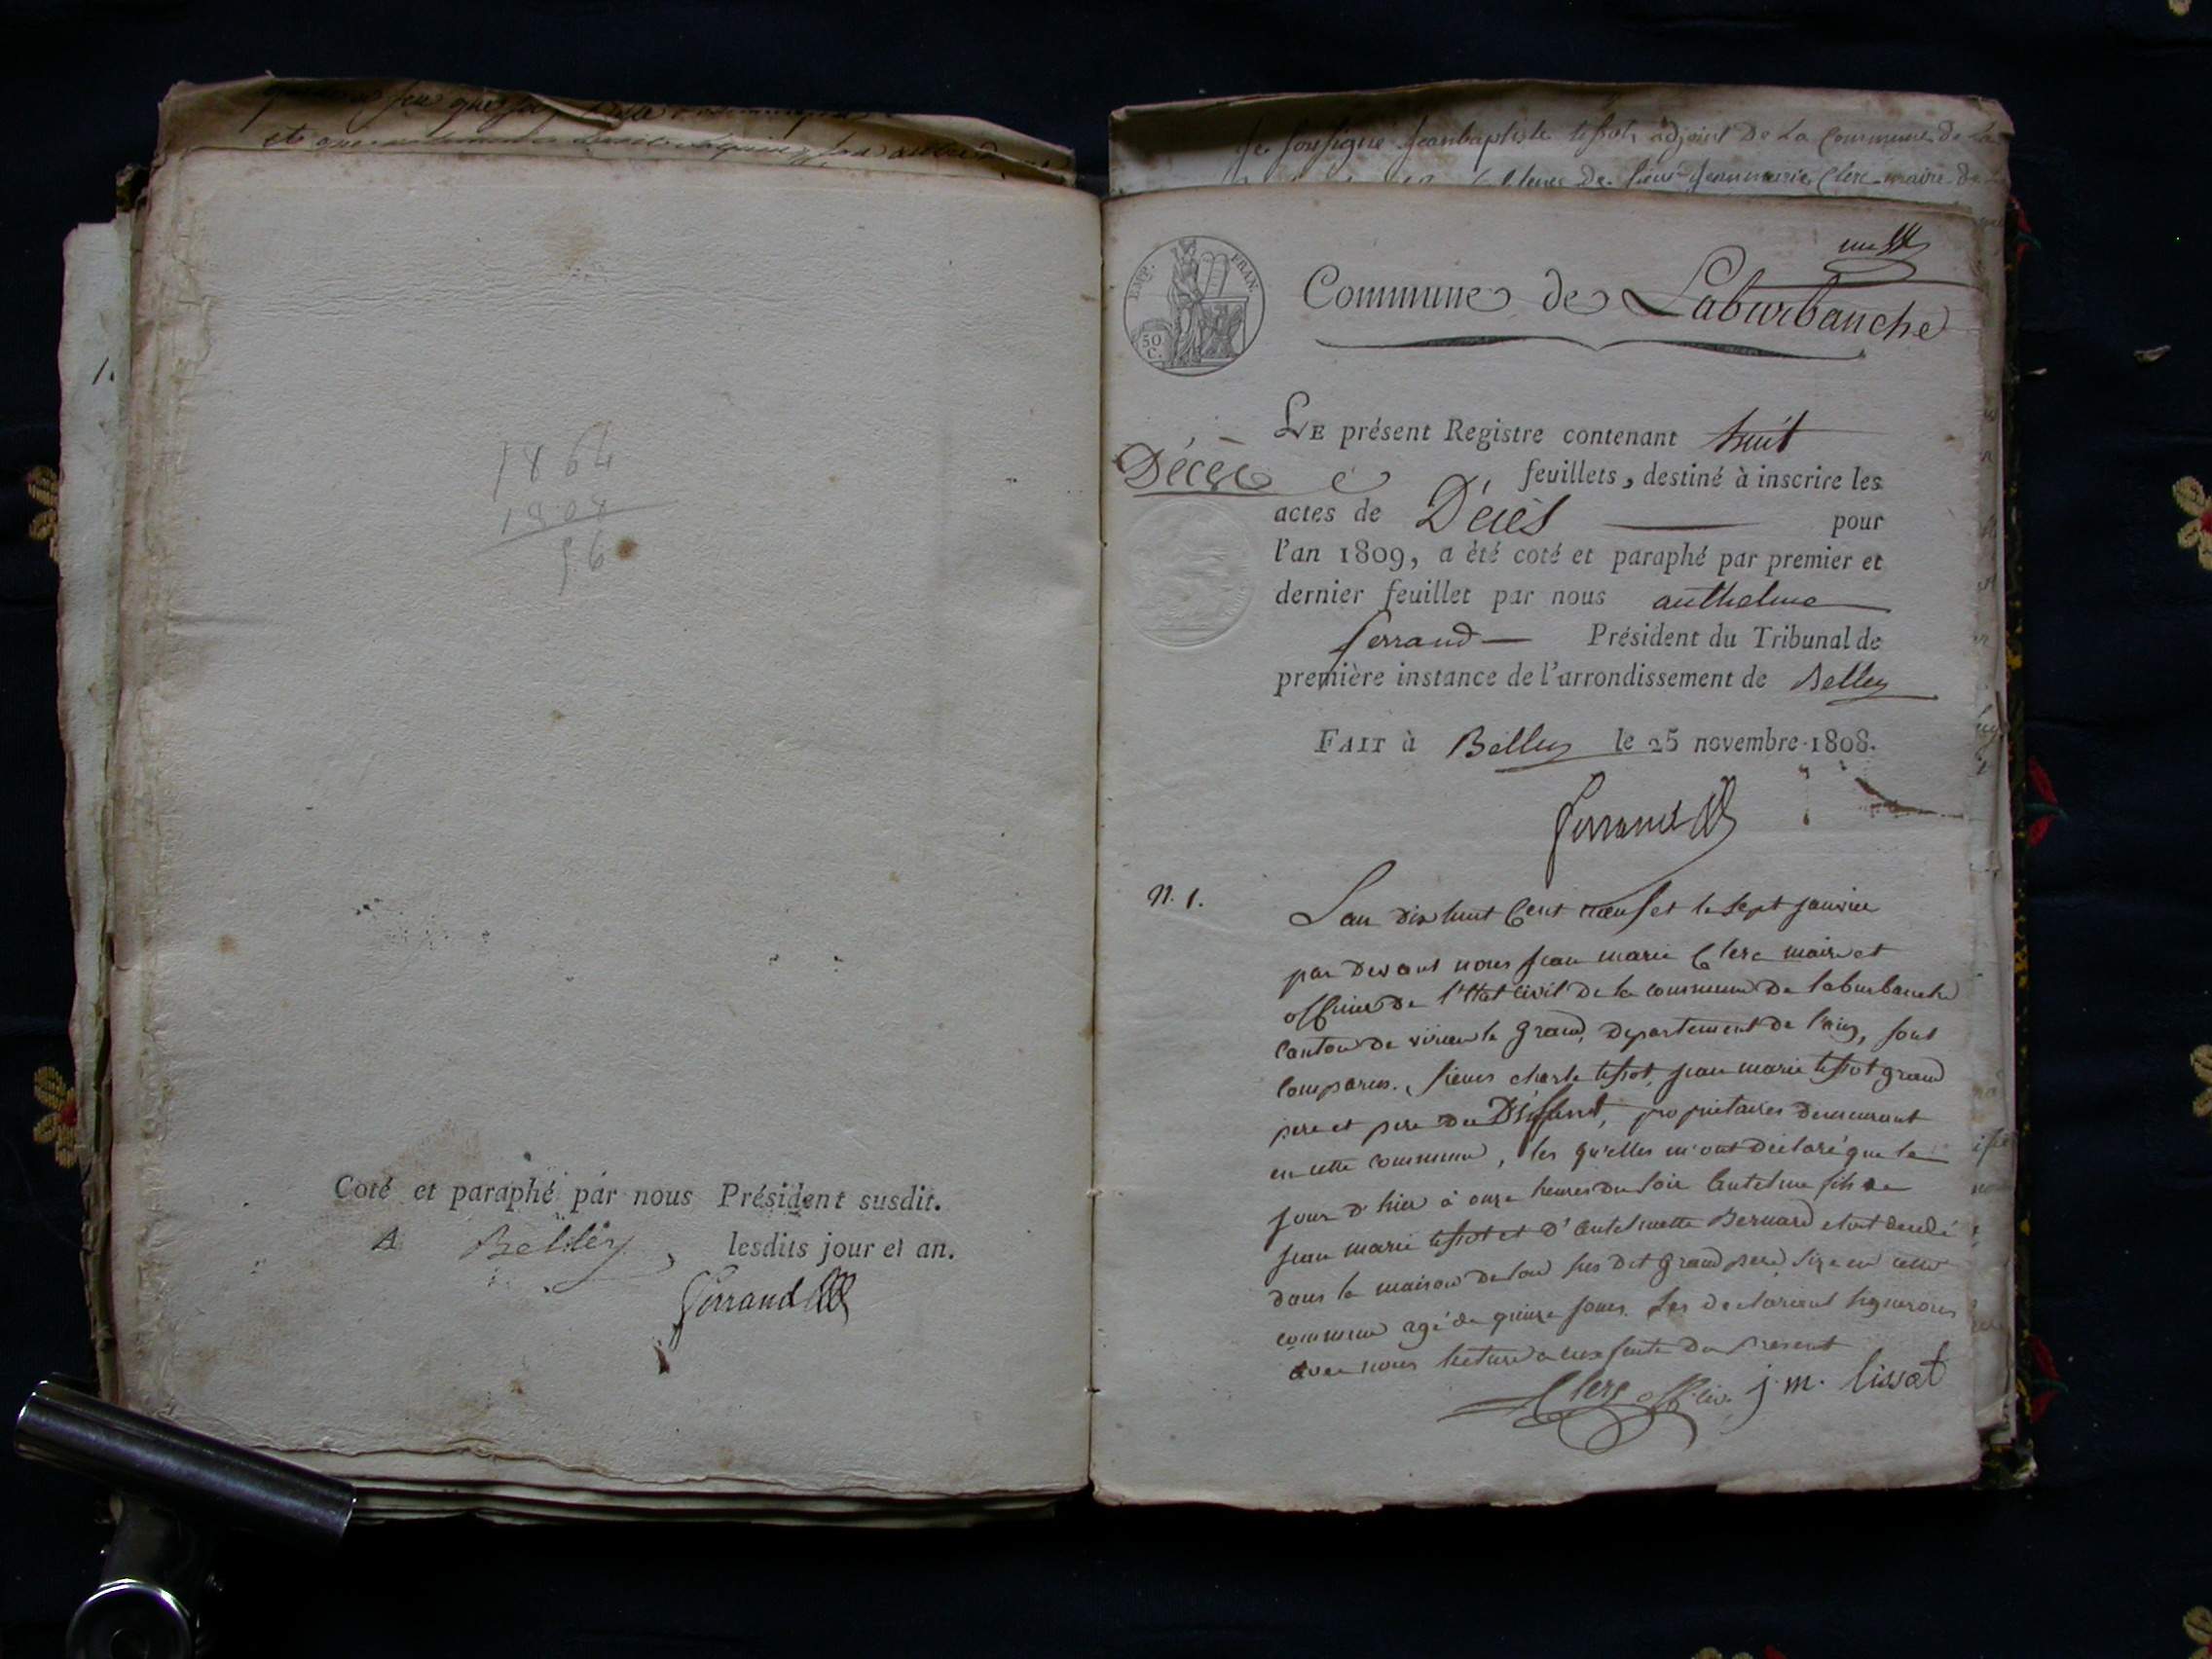 1864
1808
56
Coté et paraphé par nous Président susdit.
A Belley, lesdits jour et an.
Ferrand
Je soussigné jeanbaptiste tissot adjoint De La Commune de La
un
EMP. FRAN.
50 C.
Commune de Laburbanche
LE présent Registre contenant huit
Décès
feuillets, destiné à inscrire les
actes de Décès pour
l'an 1809, a été coté et paraphé par premier et
dernier feuillet par nous anthelme
ferrand Président du Tribunal de
première instance de l'arrondissement de Belley
FAIT à Belley le 25 novembre 1808.
Ferrand
N. 1.
L'an dix huit Cent neuf et le sept janvier
par devant nous jean marie Clerc maire et
officier de l'état civil de la commune de laburbanche
Canton de virieu le grand, departement de l'ain, sont
Comparus. sieurs charle tissot, jean marie tissot grand
pere et pere du Déffunt, propriétaires demeurant
en cette commune, les qu'elles m'ont déclaré que le
jour d'hier à onze heures du soir Antelme fils de
jean marie tissot et d'antelmette Bernard etoit decedé
dans la maison de son sus dit grand pere, size en cette
commune agé de quinze jours. Les declarant signerons
avec nous lecture a eux faite du present
Clerc off. civ. j. m. tissot